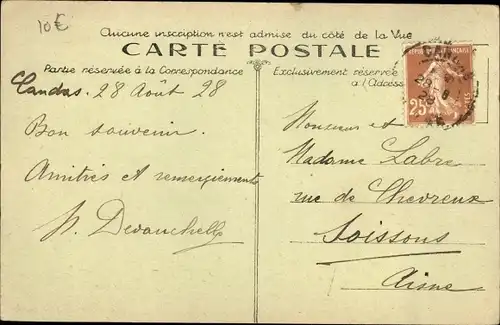 10€
Aucune inscription n'est admise du côté de la Vue
CARTE POSTALE
Partie réservée à la Correspondance
Exclusivement réservé
à l'Adresse
RÉPUBLIQUE FRANÇAISE
25
Candas. 28 Août 28
Bon souvenir.
Amitiés et remerciements
Monsieur et
Madame Labre
rue de Chevreux
Soissons
Aisne